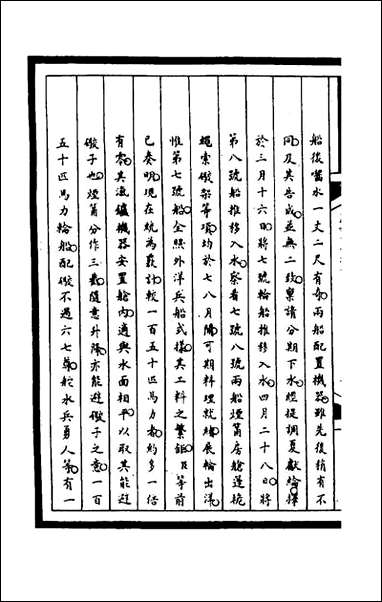 船後喫水一丈二尺有奇兩船配置機器雖先後稍有不
同及其告成並無二致稟請分期下水經提調夏獻綸擇
於三月十六日將七號輪船推移入水四月二十八日將
第八號船推移入水察看七號八號兩船煙筩房艙蓬桅
繩索礮架等項均於七八月間可期料理就緒展輪出洋
惟第七號船全照外洋兵船式樣其工料之繁鉅臣等前
已奏明現在統為覈計較一百五十匹馬力者約多一倍
有零其汽爐機器安置艙內適與水面相平以取其能避
礮子也煙筩分作三截隨意升降亦能避礮子之意一百
五十匹馬力輪船配礮不過六七尊舵水兵勇人等有一